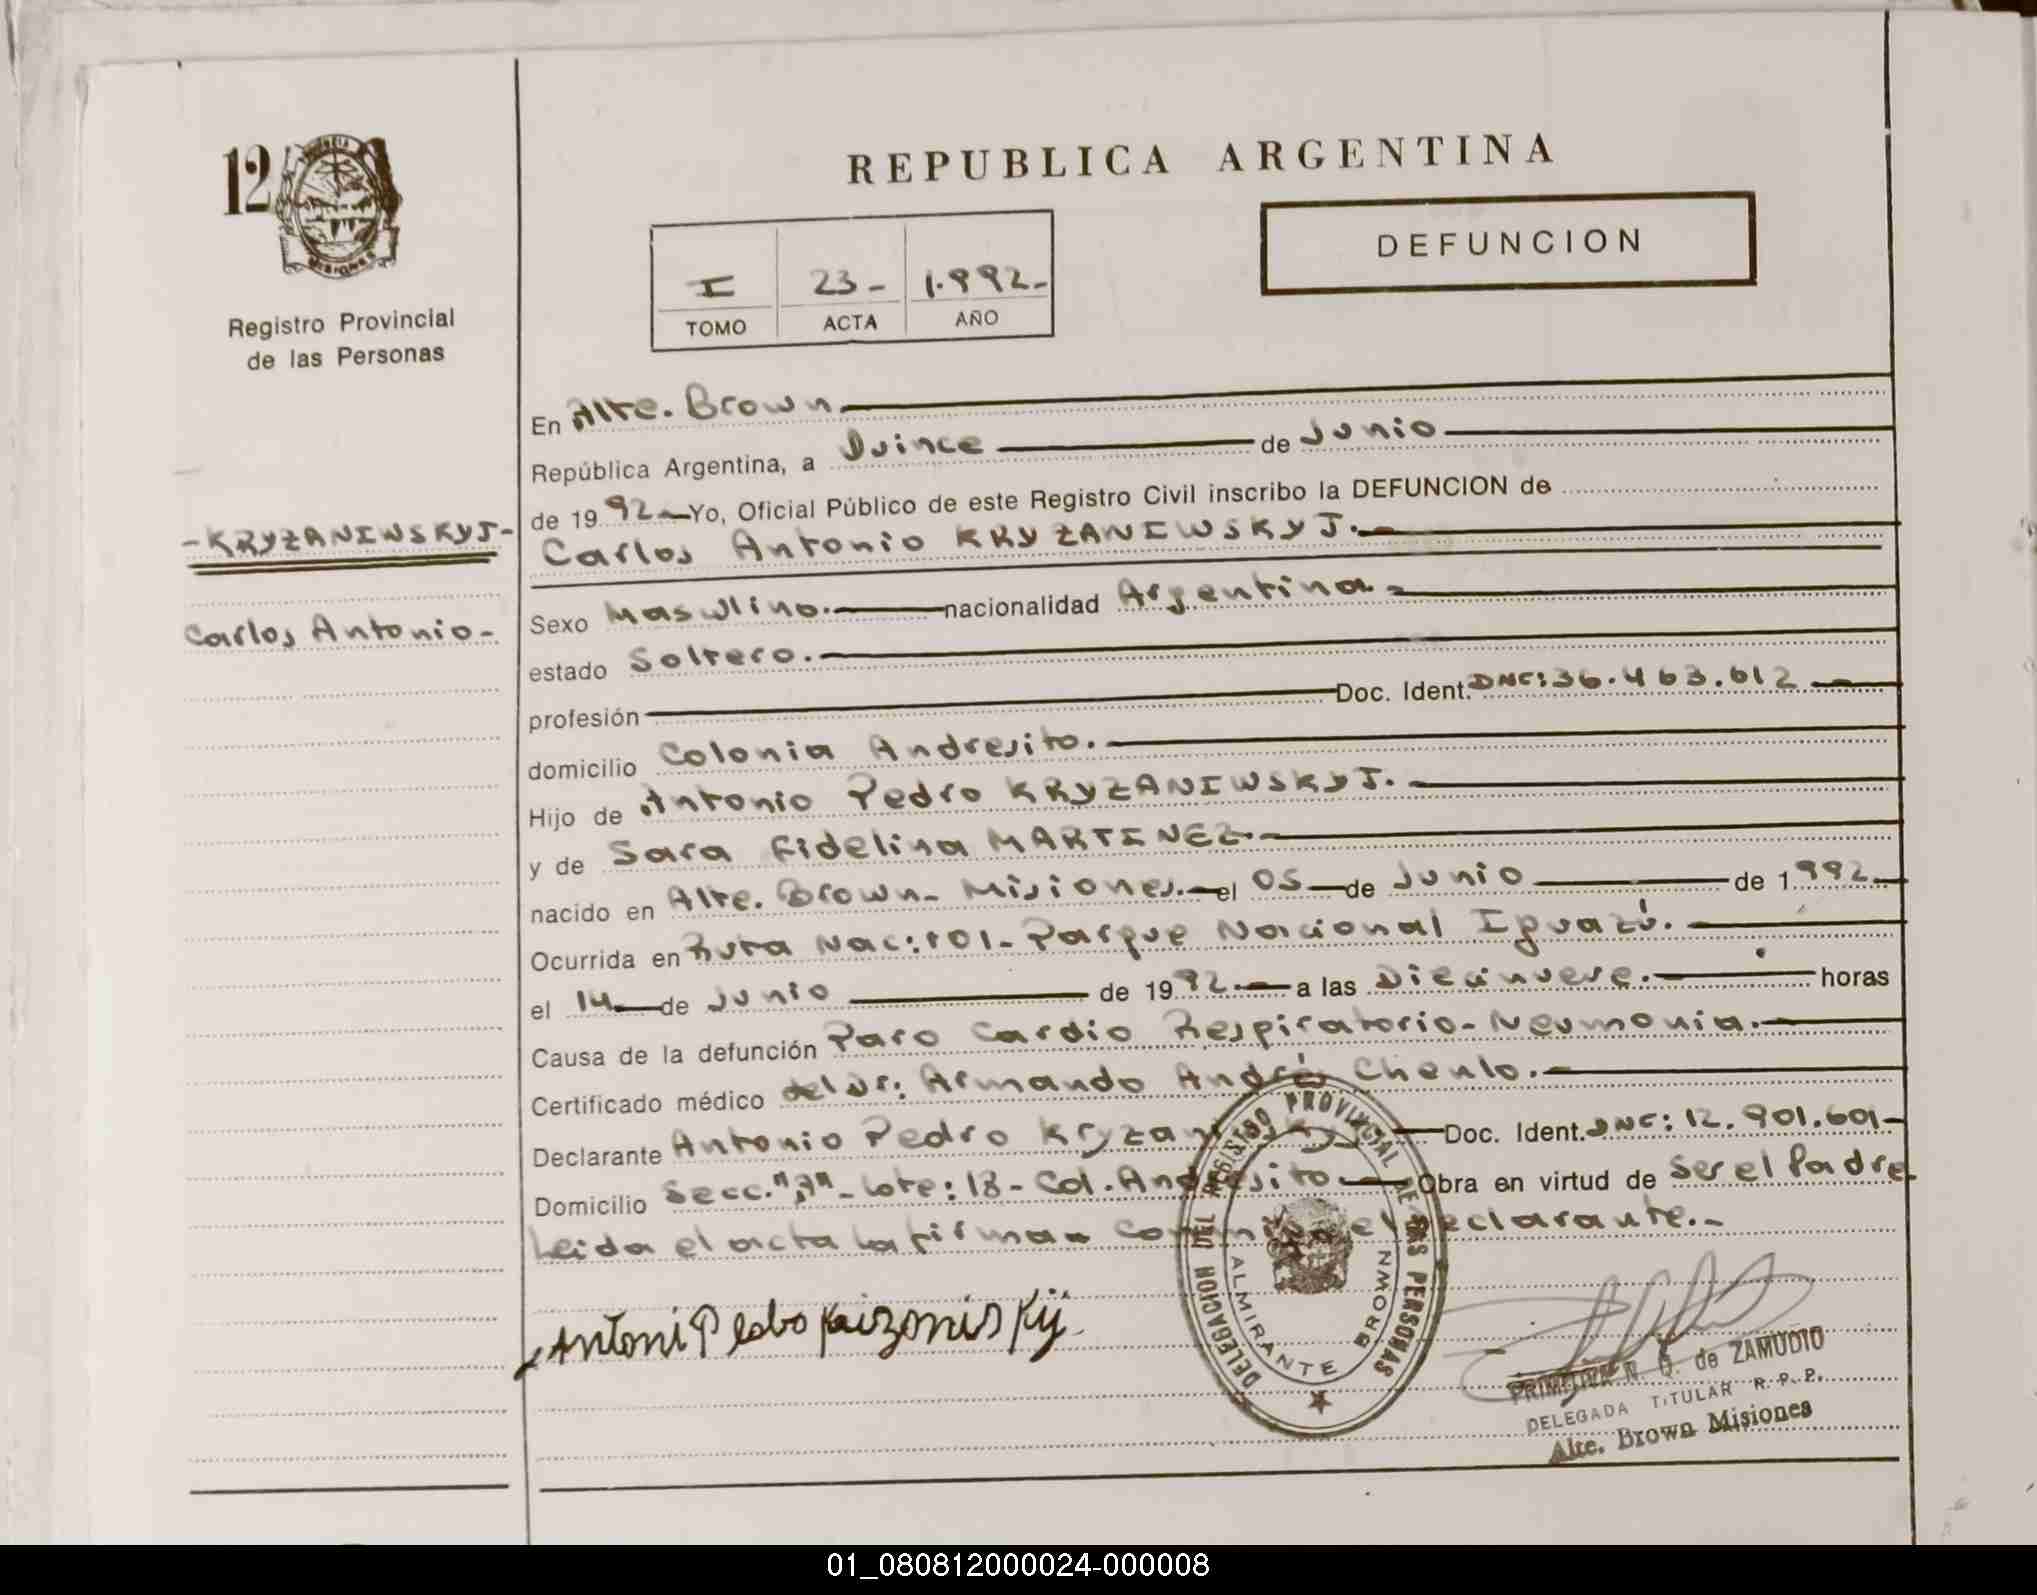 12
Registro Provincial
de las Personas
-KRYZANIWSKYJ-
Carlos Antonio-
REPUBLICA ARGENTINA
DEFUNCION
I 23- 1.992-
TOMO ACTA AÑO
En Alte. Brown
República Argentina, a Quince de Junio
de 1992 Yo, Oficial Público de este Registro Civil inscribo la DEFUNCION de
Carlos Antonio KRYZANIWSKYJ.
Sexo Masculino. nacionalidad Argentina-
estado Soltero.
profesión Doc. Ident. DNI: 36.463.612
domicilio Colonia Andresito.
Hijo de Antonio Pedro KRYZANIWSKYJ.
y de Sara Fidelina MARTINEZ.-
nacido en Alte. Brown- Misiones.- el 05 de Junio de 1992
Ocurrida en Ruta Nac: 101- Parque Nacional Iguazú.
el 14 de Junio de 1992.- a las Diecinueve. horas
Causa de la defunción Paro Cardio Respiratorio- Neumonia.-
Certificado médico del Dr: Armando Andrés Chenlo.-
Declarante Antonio Pedro Doc. Ident. DNI: 12.901.601-
Domicilio Secc. lote: 18- Col. Andresito Obra en virtud de Ser el Padre
Leida el acta la firma- el declarante.-
Antoni Pedro
DELEGACION DEL REGISTRO PROVINCIAL DE LAS PERSONAS
ALMIRANTE BROWN
PRIMITIVA N. O. de ZAMUDIO
DELEGADA TITULAR R. P. P.
Alte. Brown Misiones
MISIONES
01_080812000024-000008